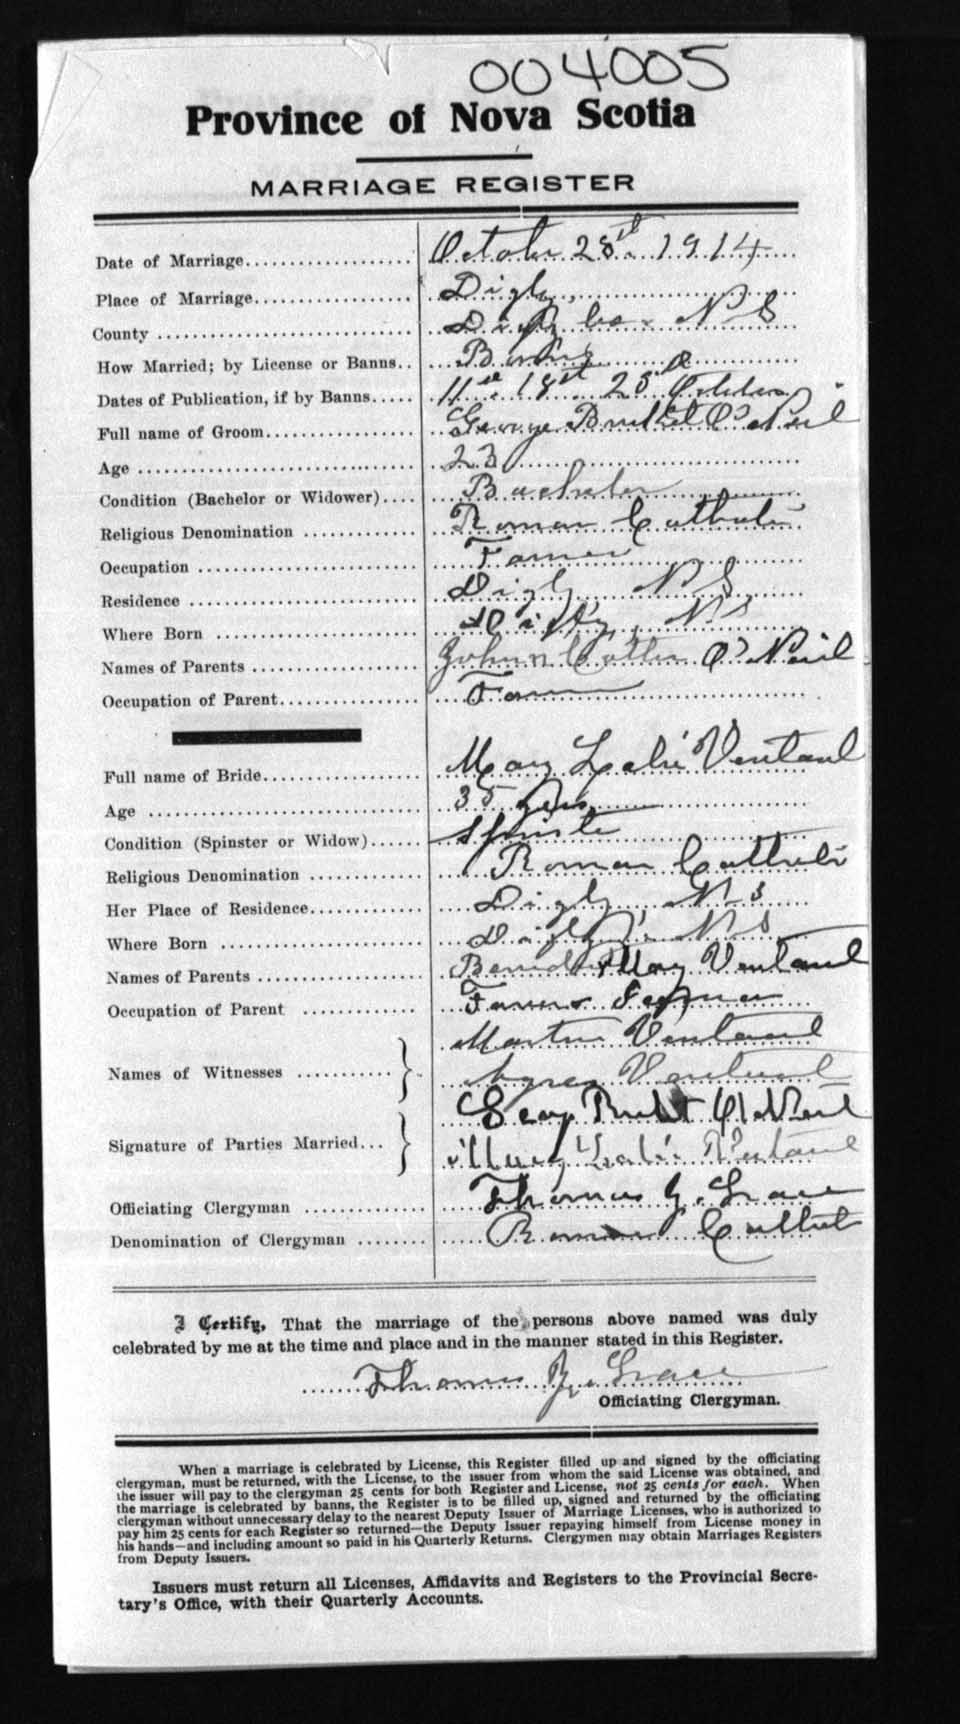 004005
Province of Nova Scotia
MARRIAGE REGISTER
Date of Marriage October 28th 1914
Place of Marriage Digby,
County Digby Co. N S
How Married; by License or Banns Banns
Dates of Publication, if by Banns 11th 18th 25th October
Full name of Groom George O'Neil
Age 23
Condition (Bachelor or Widower) Bachelor
Religious Denomination Roman Catholic
Occupation Farmer
Residence Digby N S
Where Born Digby, N S
Names of Parents John O'Neil
Occupation of Parent Farmer
Full name of Bride Mary Ventaul
Age 35 yrs
Condition (Spinster or Widow) Spinster
Religious Denomination Roman Catholic
Her Place of Residence Digby N S
Where Born Digby, N S
Names of Parents Mary Ventaul
Occupation of Parent Farmer
Names of Witnesses Martin Ventaul
Agnes Ventaul
Signature of Parties Married O'Neil
Mary Ventaul
Officiating Clergyman Thomas Grace
Denomination of Clergyman Roman Catholic
I Certify, That the marriage of the persons above named was duly
celebrated by me at the time and place and in the manner stated in this Register.
Thomas Grace
Officiating Clergyman.
When a marriage is celebrated by License, this Register filled up and signed by the officiating
clergyman, must be returned, with the License, to the issuer from whom the said License was obtained, and
the issuer will pay to the clergyman 25 cents for both Register and License, not 25 cents for each. When
the marriage is celebrated by banns, the Register is to be filled up, signed and returned by the officiating
clergyman without unnecessary delay to the nearest Deputy Issuer of Marriage Licenses, who is authorized to
pay him 25 cents for each Register so returned—the Deputy Issuer repaying himself from License money in
his hands—and including amount so paid in his Quarterly Returns. Clergymen may obtain Marriages Registers
from Deputy Issuers.
Issuers must return all Licenses, Affidavits and Registers to the Provincial Secre-
tary's Office, with their Quarterly Accounts.